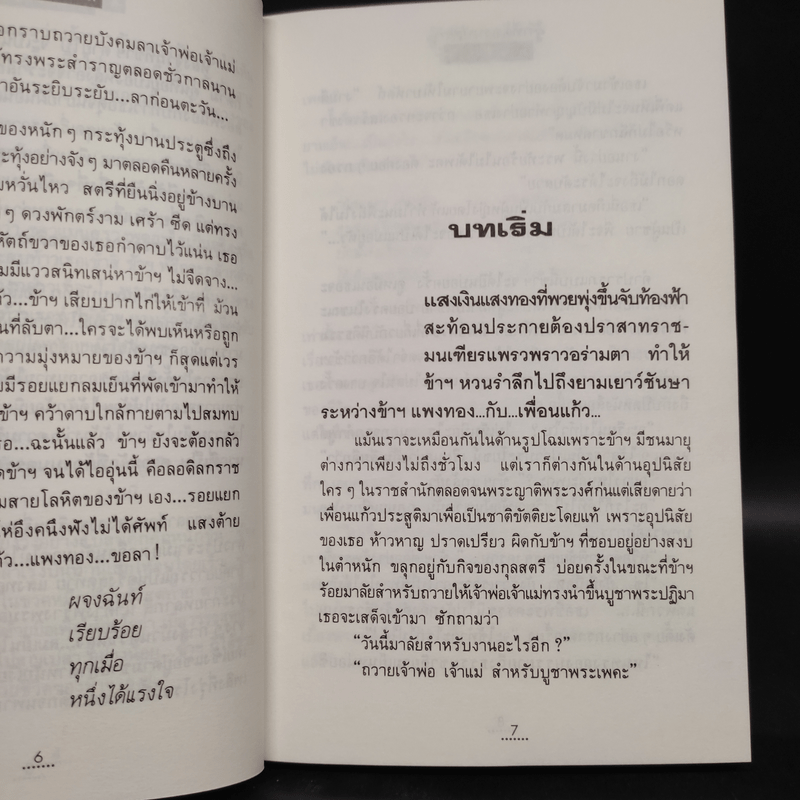 อกราบถวายบังคมลาเจ้าพ่อเจ้าแม่
ทรงพระสำราญตลอดชั่วกาลนาน
าอันระยิบระยับ...ลาก่อนตะวัน...
ของหนัก ๆ กระทุ้งบานประตูซึ่งถึง
ะทุ้งอย่างจัง ๆ มาตลอดคืนหลายครั้ง
มหวั่นไหว สตรีที่ยืนนิ่งอยู่ข้างบาน
ๆ ดวงพักตร์งาม เศร้า ซีด แต่ทรง
หัตถ์ขวาของเธอกำดาบไว้แน่น เธอ
มมีแววสนิทเสน่หาข้าฯ ไม่จืดจาง...
ว...ข้าฯ เสียบปากไก่ให้เข้าที่ ม้วน
นที่ลับตา...ใครจะได้พบเห็นหรือถูก
ความมุ่งหมายของข้าฯ ก็สุดแต่เวร
ยมีรอยแยกลมเย็นที่พัดเข้ามาทำให้
ข้าฯ คว้าดาบใกล้กายตามไปสมทบ
รอ...ฉะนั้นแล้ว ข้าฯ ยังจะต้องกลัว
ดข้าฯ จนได้ไออุ่นนี้ คือลอดิลกราช
มสายโลหิตของข้าฯ เอง...รอยแยก
ห่อึงคนึงฟังไม่ได้ศัพท์ แสงต้าย
ว...แพงทอง...ขอลา !
ผจงฉันท์
เรียบร้อย
ทุกเมื่อ
หนึ่งได้แรงใจ
6
บทเริ่ม
แสงเงินแสงทองที่พวยพุ่งขึ้นจับท้องฟ้า
สะท้อนประกายต้องปราสาทราช-
มนเฑียรแพรวพราวอร่ามตา ทำให้
ข้าฯ หวนรำลึกไปถึงยามเยาว์ชันษา
ระหว่างข้าฯ แพงทอง...กับ...เพื่อนแก้ว...
แม้นเราจะเหมือนกันในด้านรูปโฉมเพราะข้าฯ มีชนมายุ
ต่างกว่าเพียงไม่ถึงชั่วโมง แต่เราก็ต่างกันในด้านอุปนิสัย
ใคร ๆ ในราชสำนักตลอดจนพระญาติพระวงศ์ก่นแต่เสียดายว่า
เพื่อนแก้วประสูติมาเพื่อเป็นชาติขัตติยะโดยแท้ เพราะอุปนิสัย
ของเธอ ห้าวหาญ ปราดเปรียว ผิดกับข้าฯ ที่ชอบอยู่อย่างสงบ
ในตำหนัก ขลุกอยู่กับกิจของกุลสตรี บ่อยครั้งในขณะที่ข้าฯ
ร้อยมาลัยสำหรับถวายให้เจ้าพ่อเจ้าแม่ทรงนำขึ้นบูชาพระปฏิมา
เธอจะเสด็จเข้ามา ซักถามว่า
“วันนี้มาลัยสำหรับงานอะไรอีก ?”
“ถวายเจ้าพ่อ เจ้าแม่ สำหรับบูชาพระเพคะ”
7